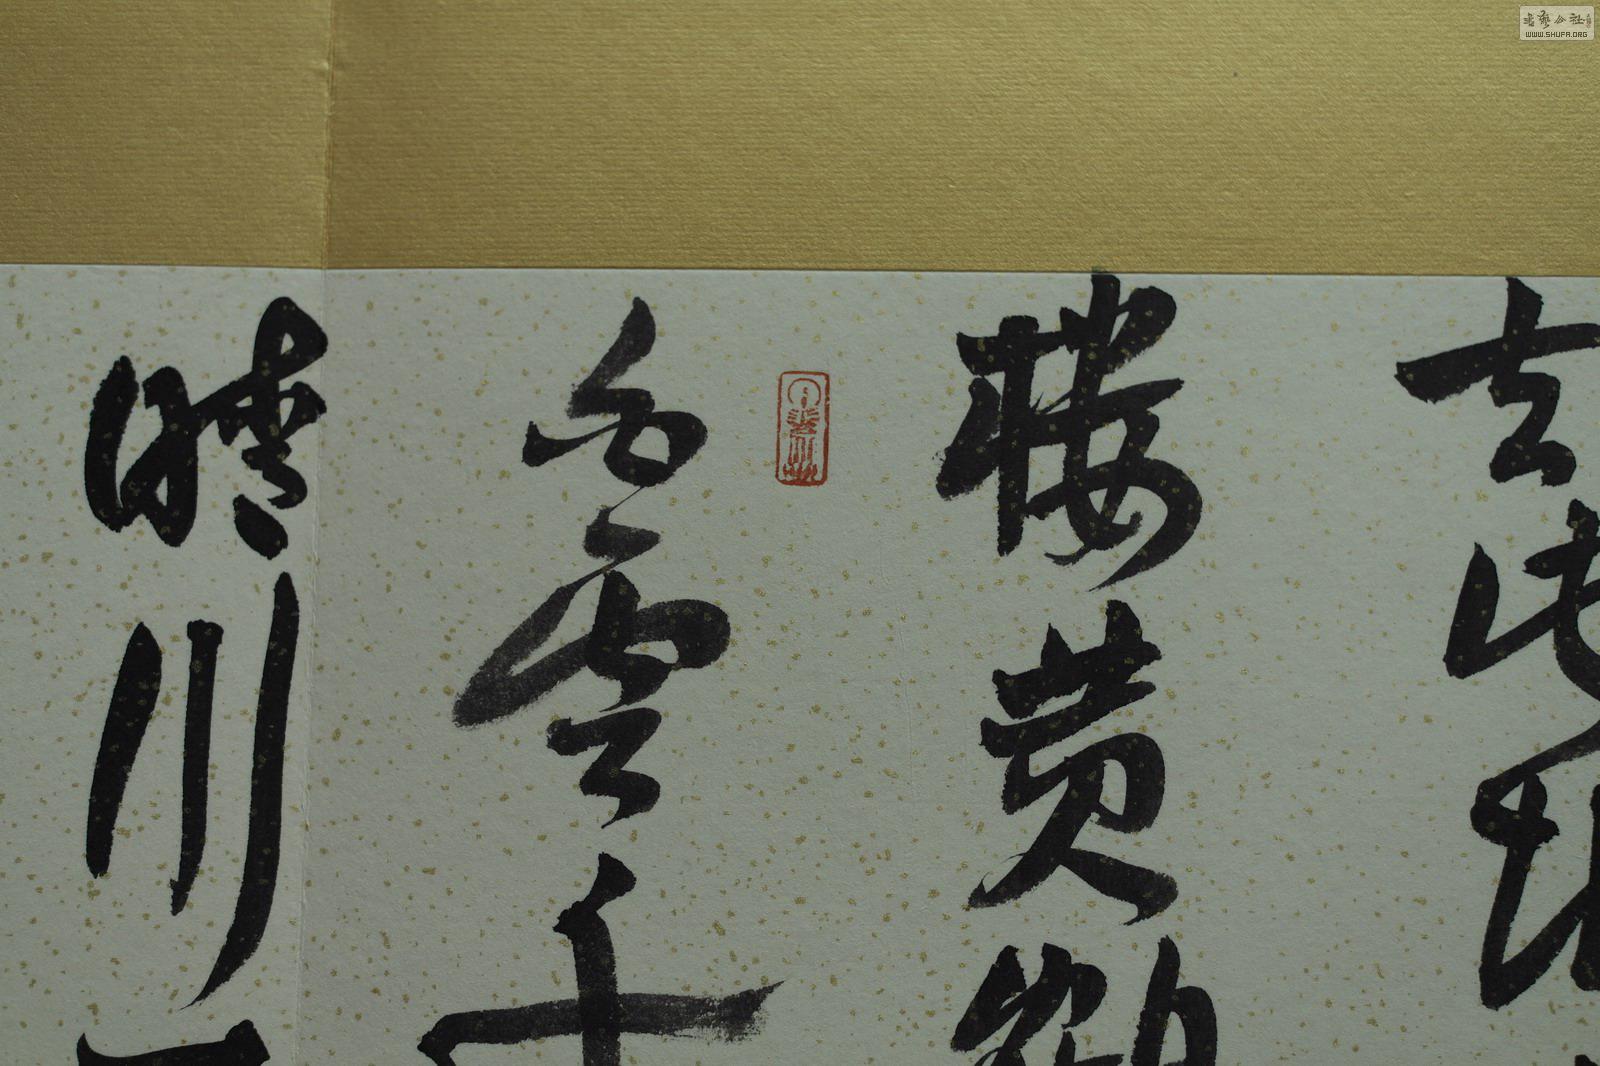 去此地
樓黄鶴
白雲千
晴川
書藝公社
WWW.SHUFA.ORG